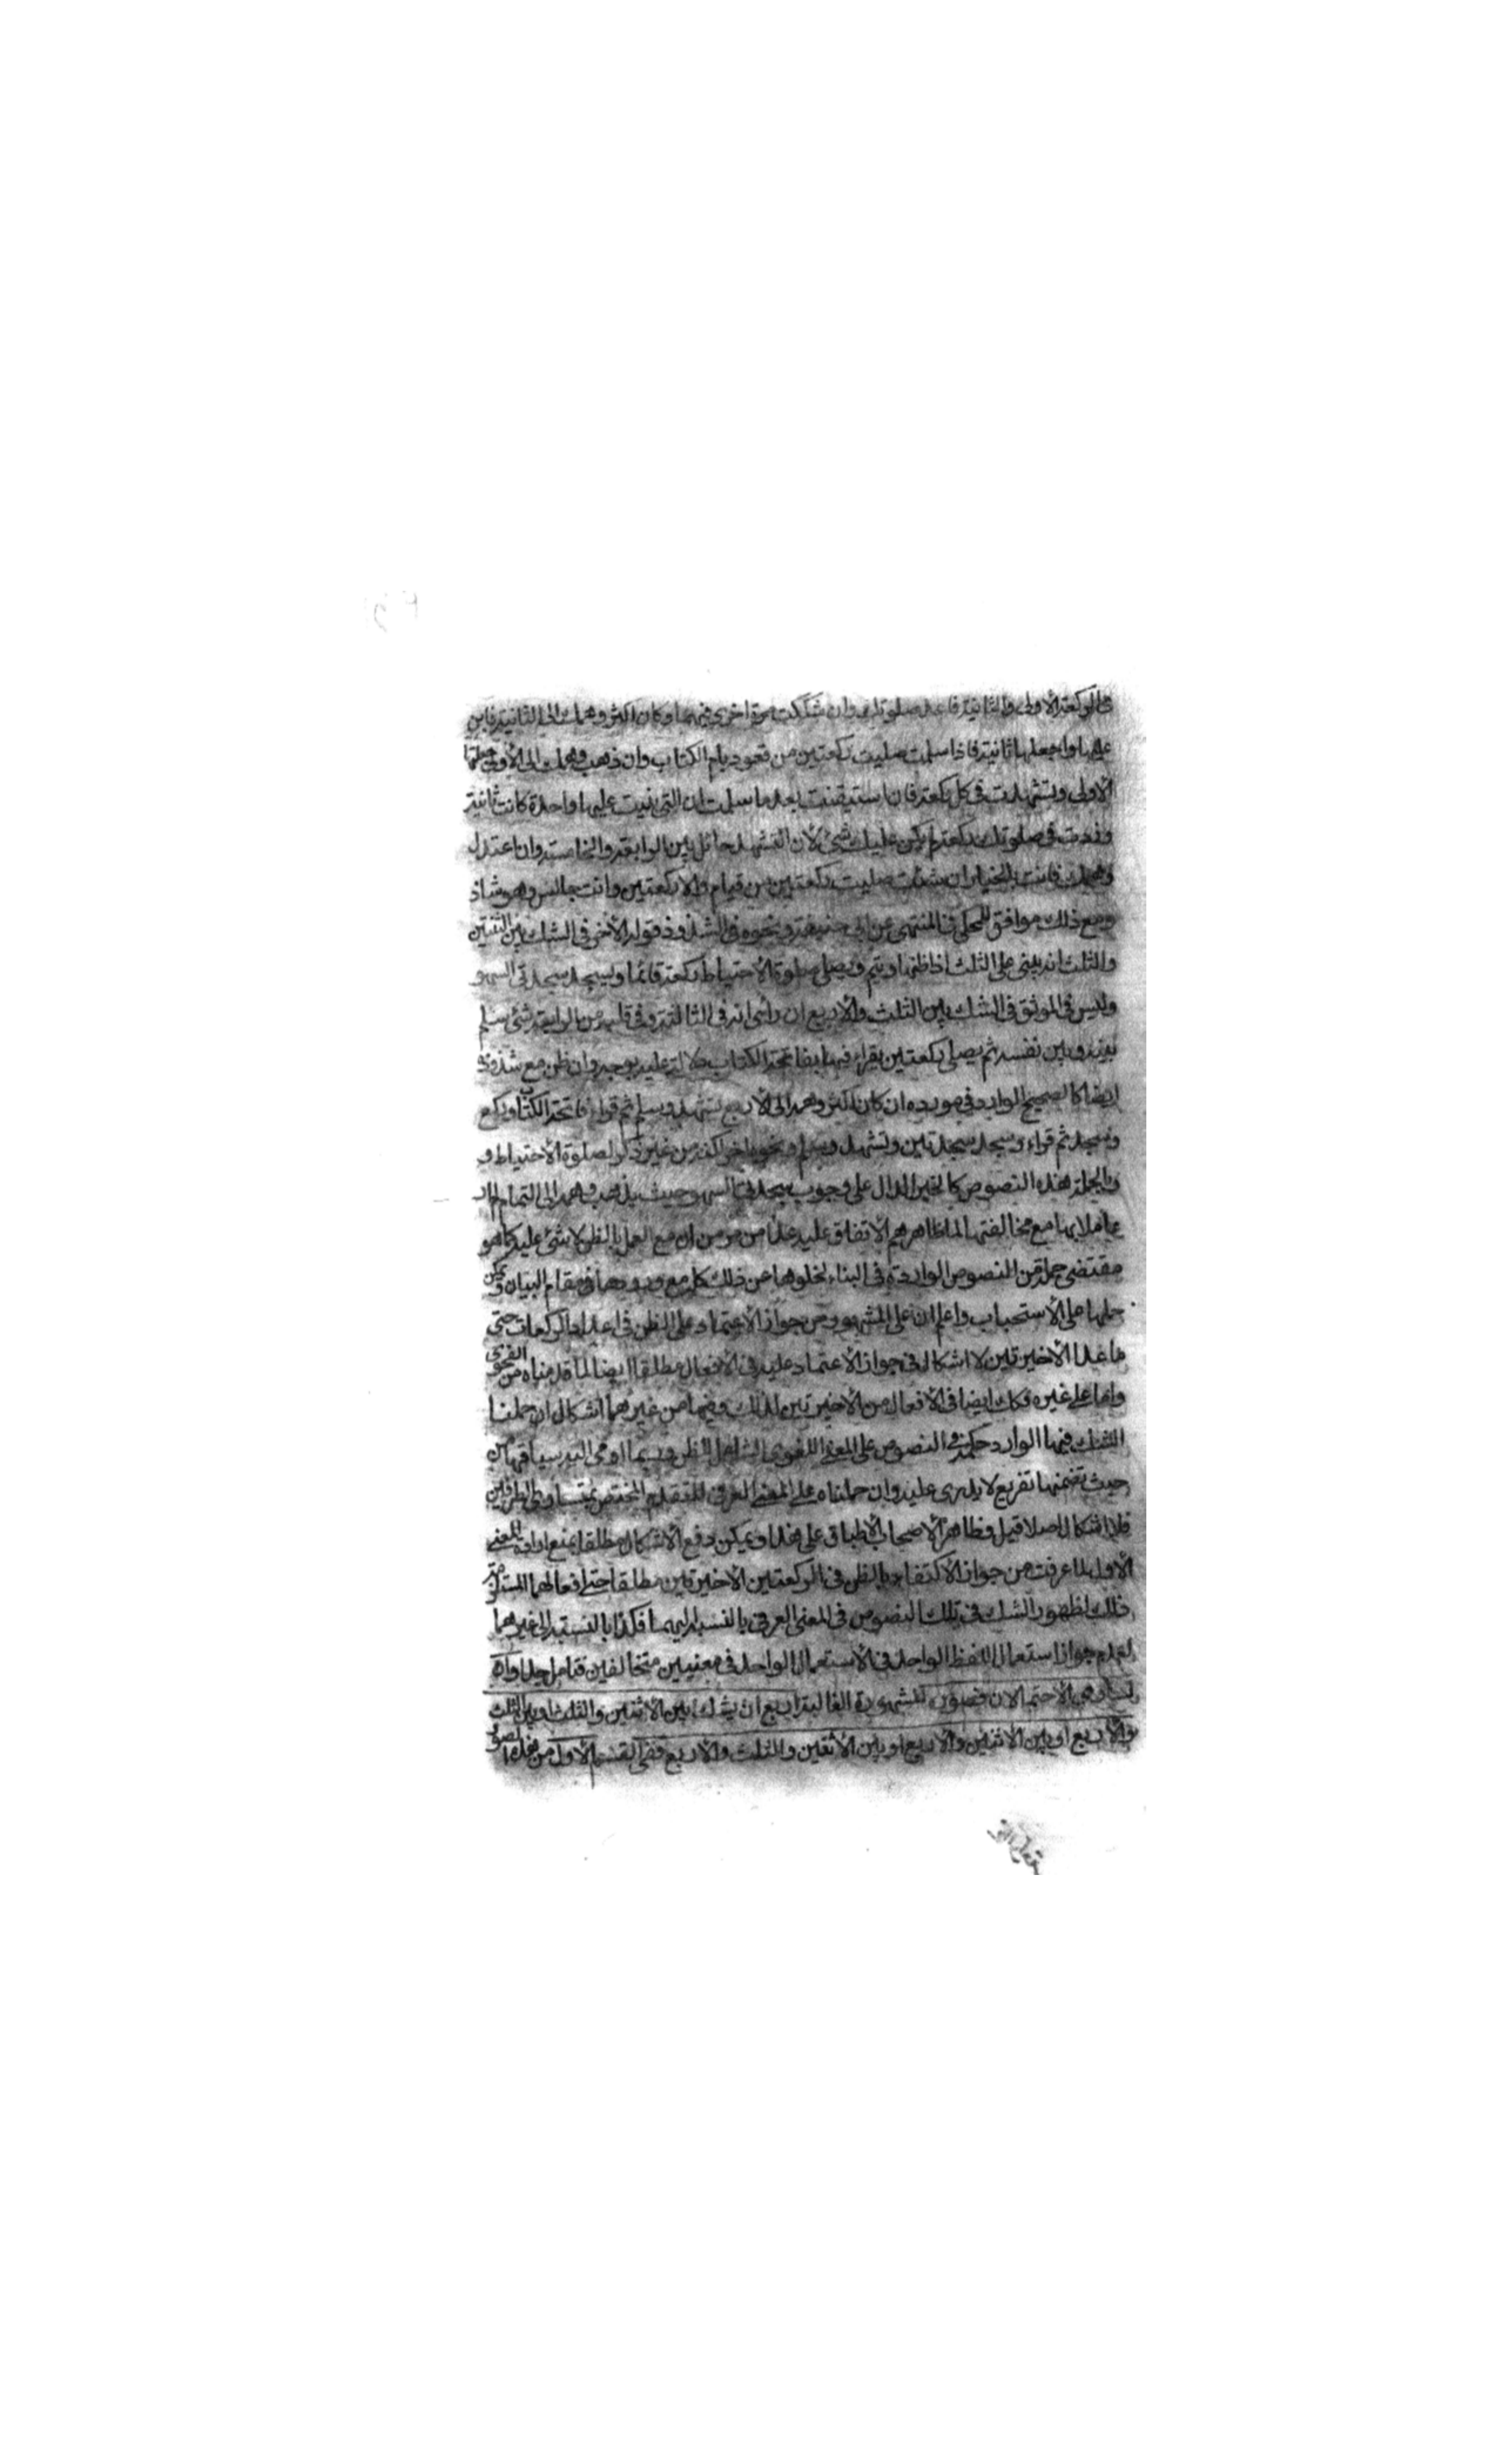 في الركعة الأولى والثانية فاعد صلوتك وان شككت مرة اخرى فيهما وكان اكثر وهمك الى الثانية فابن
عليها واجعلها ثانية فاذا سلمت صليت ركعتين من قعود بام الكتاب وان ذهب وهمك الى الأولى جعلتها
الأولى وتشهدت في كل ركعة فان استيقنت بعد ما سلمت ان التي بنيت عليها واحدة كانت ثانية
وزدت في صلوتك ركعة لم يكن عليك شئ لأن التشهد حائل بين الرابعة والخامسة وان اعتدل
وهمك فانت بالخيار ان شئت صليت ركعتين من قيام والا ركعتين وانت جالس وهو شاذ
ومع ذلك موافق للمحكي في المنتهى عن ابي حنيفة ونحوه في الشذوذ قوله الأخر في الشك بين الثنتين
والثلث انه يبني على الثلث اذا ظنها ويتم ويصلي صلوة الأحتياط ركعة قائما ويسجد سجدتي السهو
وليس في الموثق في الشك بين الثلث والأربع ان رأى انه في الثالثة وفي قلبه من الرابعة شئ سلم
بينه وبين نفسه ثم يصلي ركعتين يقراء فيهما بفاتحة الكتاب دلالة عليه بوجه وان ظن مع شذوذه
ايضا كالصحيح الوارد في مورده ان كان اكثر وهمه الى الأربع تشهد وسلم ثم قراء فاتحة الكتاب وركع
وسجد ثم قراء وسجد سجدتين وتشهد وسلم ونحوه اخر لكن من غير ذكر لصلوة الأحتياط و
بالجملة هذه النصوص كالخبر الدال على وجوب سجدتي السهو حيث يذهب وهمه الى التمام لم ار
عاملا بها مع مخالفتها لما ظاهرهم الاتفاق عليه عدا من مر من ان مع العمل بالظن لا شئ عليه كما هو
مقتضى جملة من النصوص الواردة في البناء لخلوها عن ذلك كله مع ورودها في مقام البيان ويمكن
حملها على الأستحباب واعلم ان على المشهور من جواز الأعتماد على الظن في اعداد الركعات حتى
ما عدا الأخيرتين لا اشكال في جواز الأعتماد عليه في الأفعال مطلقا ايضا لما قدمناه من الفحوى
واما على غيره فكك ايضا في الأفعال من الأخيرتين لذلك وفيها من غيرهما اشكال ان حملنا
الشك فيها الوارد حكمه في النصوص على المعنى اللغوي الشامل للظن وربما اومى اليه سياقها من
حيث تضمنها تفريع لا يدري عليه وان حملناه على المعنى العرفي المتقدم المختص بمتساوي الطرفين
فلا اشكال اصلا قيل وظاهر الأصحاب الأطباق على هذا ويمكن دفع الأشكال مطلقا بمنع ارادة المعنى
الأول لما عرفت من جواز الأكتفاء بالظن في الركعتين الأخيرتين مطلقا حتى افعالهما المستلزمة
ذلك لظهور الشك في تلك النصوص في المعنى العرفي بالنسبة اليهما فكذا بالنسبة الى غيرهما
لعدم جواز استعمال اللفظ الواحد في الأستعمال الواحد في معنيين متخالفين فتامل جدا وان
تساوى الأحتمالان فصوره المشهورة الغالبة اربع ان يشك بين الأثنين والثلث او بين الثلث
والأربع او بين الأثنين والأربع او بين الأثنين والثلث والأربع ففي القسم الأول من هذه الصور